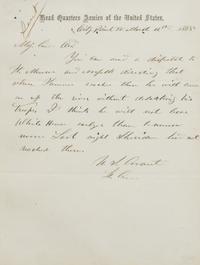 Head Quarters Armies of the United States,
City Point Va March 11th 1865
Maj. Gen. Ord
You can send a dispatch
to Ft Monroe and Norfolk directing that
when Hammond reaches there he will come
on up the river without debarking his
troops. I think he will not leave
White House earlier than to-morrow
Last night Sheridan had not
reached there.
U. S. Grant
Lt. Gen.